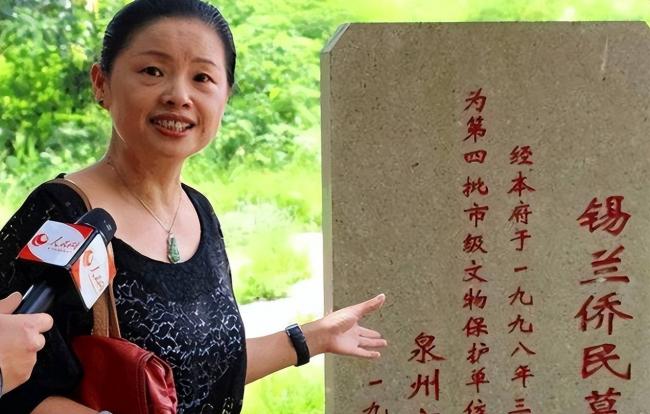 锡兰侨民墓
经本府于一九九八年三
为第四批市级文物保护单位
泉州
一九
人民网